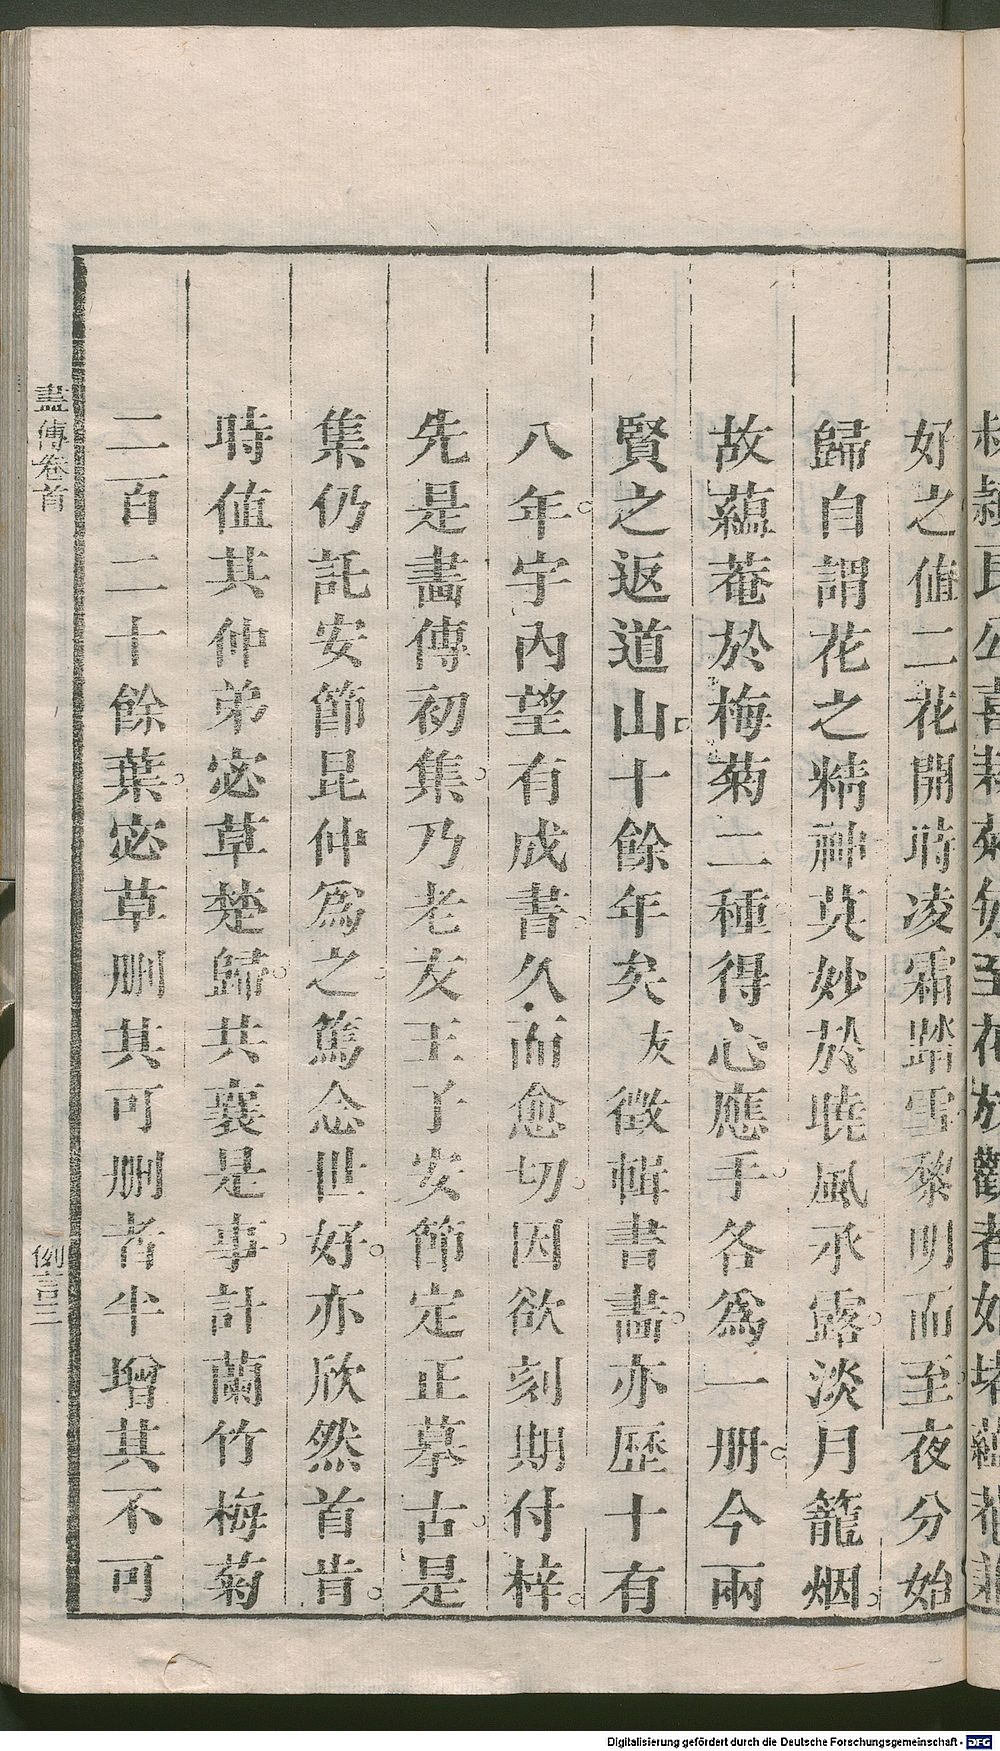 好之値二花開時凌霜踏雪黎明而至夜分始
歸自謂花之精神莫妙於曉風承露淡月籠烟
故蘊菴於梅菊二種得心應手各爲一册今兩
賢之返道山十餘年矣友徵輯書畵亦歷十有
八年宇內望有成書久而愈切因欲刻期付梓
先是畵傳初集乃老友王了安節定正摹古是
集仍託安節昆仲爲之篤念世好亦欣然首肯
時値其仲弟宓草楚歸共襄是事計蘭竹梅菊
二百二十餘葉宓草刪其可刪者半增其不可
畵傳卷首
例言三
Digitalisierung gefördert durch die Deutsche Forschungsgemeinschaft - DFG